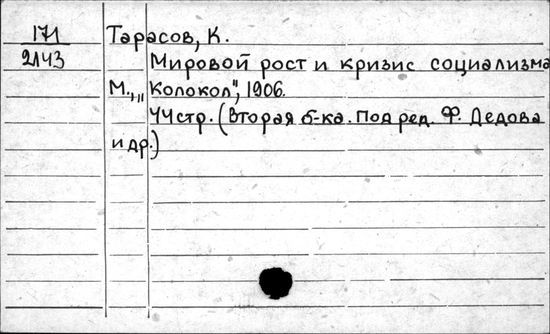 171 Тарасов, К.
2143 Мировой рост и кризис социализма
М., „Колокол", 1906.
44 стр. (Вторая б-ка. Под ред. Ф. Дедова
и др.)